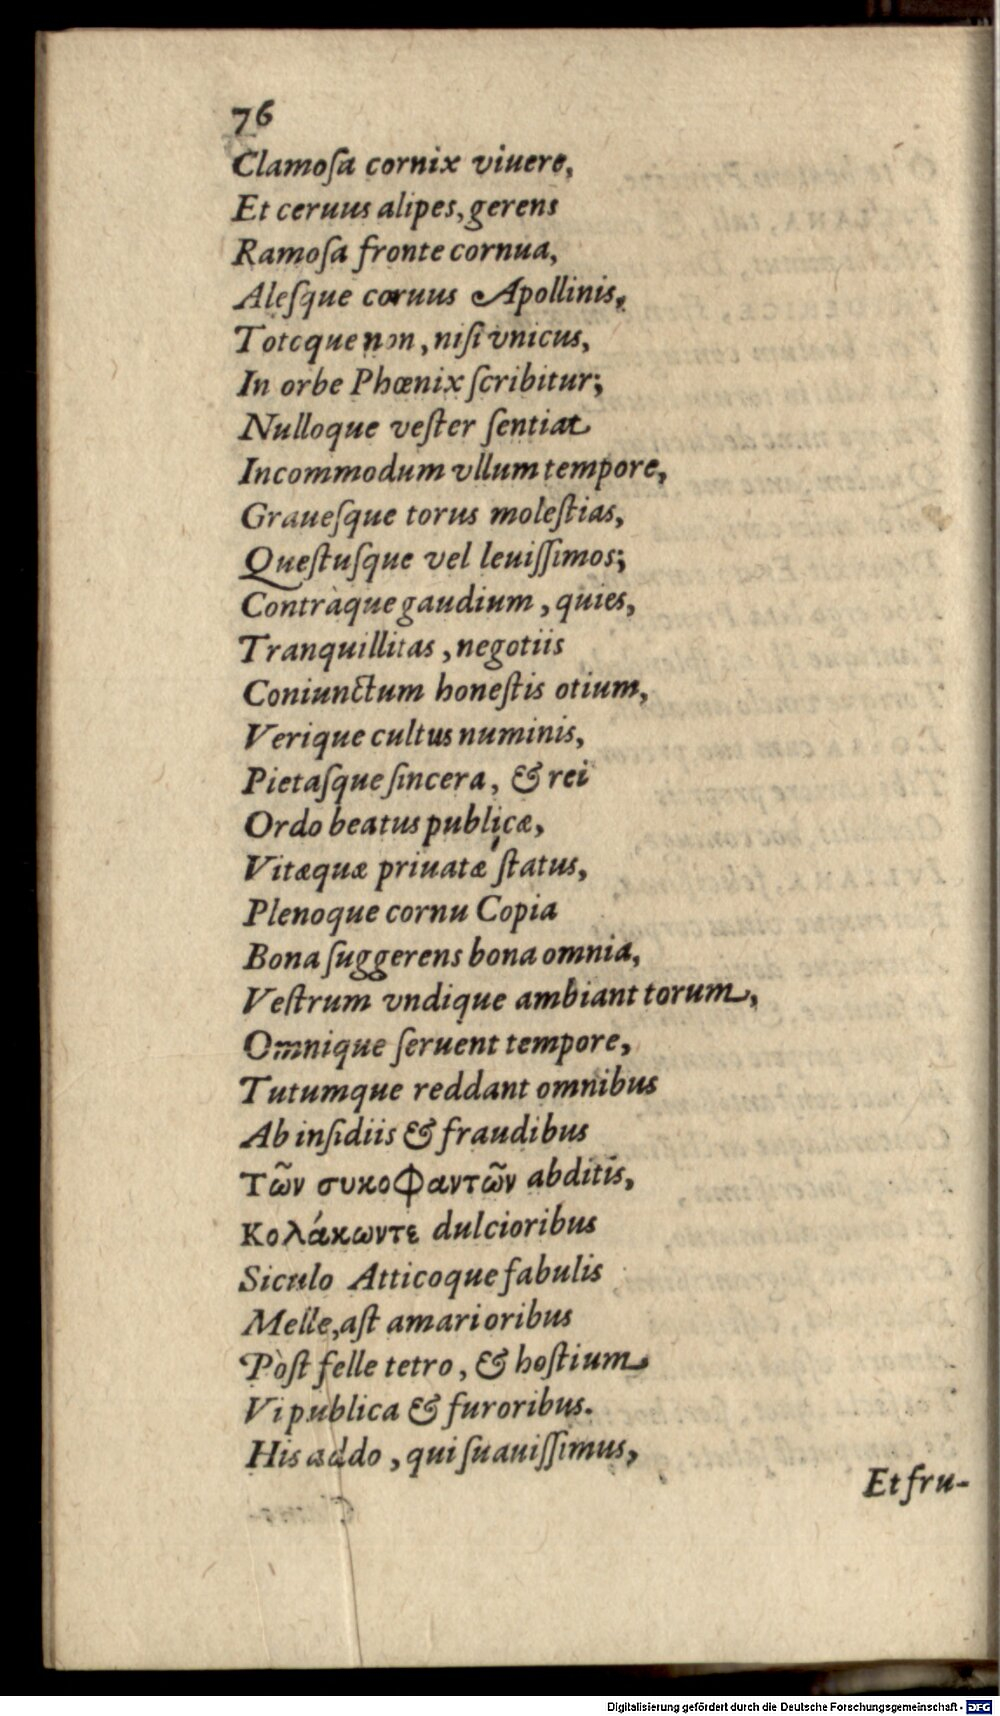 76
Clamoſa cornix viuere,
Et ceruus alipes, gerens
Ramoſa fronte cornua,
Aleſque coruus Apollinis,
Totcque non, niſi vnicus,
In orbe Phœnix ſcribitur;
Nulloque veſter ſentiat
Incommodum vllum tempore,
Graueſque torus moleſtias,
Queſtuſque vel leuiſſimos;
Contràque gaudium, quies,
Tranquillitas, negotiis
Coniunctum honeſtis otium,
Verique cultus numinis,
Pietaſque ſincera, & rei
Ordo beatus publicæ,
Vitæquæ priuatæ ſtatus,
Plenoque cornu Copia
Bona ſuggerens bona omnia,
Veſtrum vndique ambiant torum,
Omnique ſeruent tempore,
Tutumque reddant omnibus
Ab inſidiis & fraudibus
Τῶν συκοφαντῶν abditis,
Κολάκωντε dulcioribus
Siculo Atticoque fabulis
Melle, aſt amarioribus
Pòſt felle tetro, & hoſtium
Vi publica & furoribus.
His addo, qui ſuauiſſimus,
Et fru-
Digitalisierung gefördert durch die Deutsche Forschungsgemeinschaft - DFG